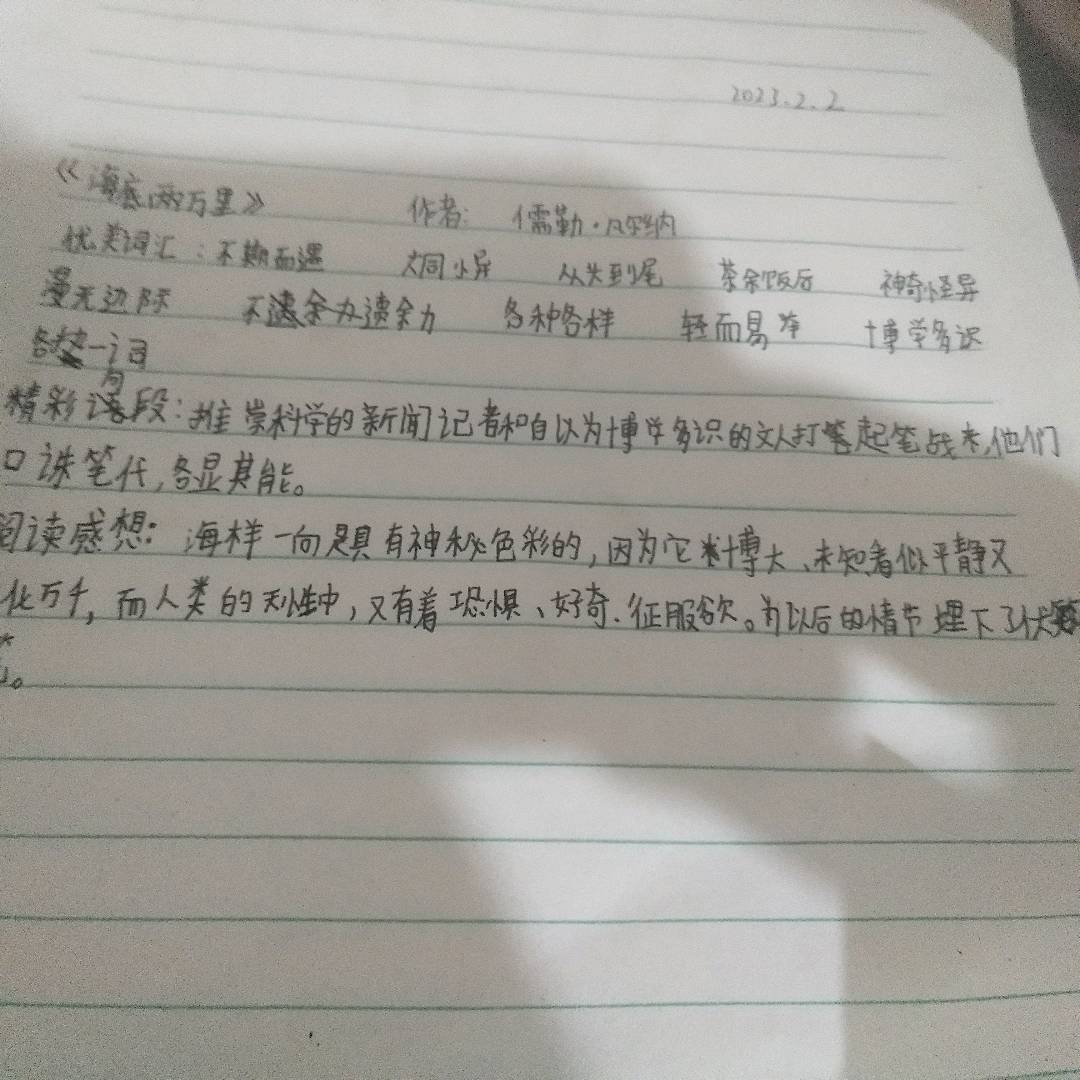 2023.2.2
《海底两万里》 作者: 儒勒·凡尔纳
优美词汇:不期而遇 大同小异 从头到尾 茶余饭后 神奇怪异
漫无边际 不遗余力遗余力 各种各样 轻而易举 博学多识
各 一词
精彩句段:推崇科学的新闻记者和自以为博学多识的文人打起笔战来,他们
口诛笔伐,各显其能。
阅读感想: 海洋一向是具有神秘色彩的,因为它 博大、未知看似平静又
化万千,而人类的天性中,又有着恐惧、好奇、征服欲。为以后的情节埋下了伏
。